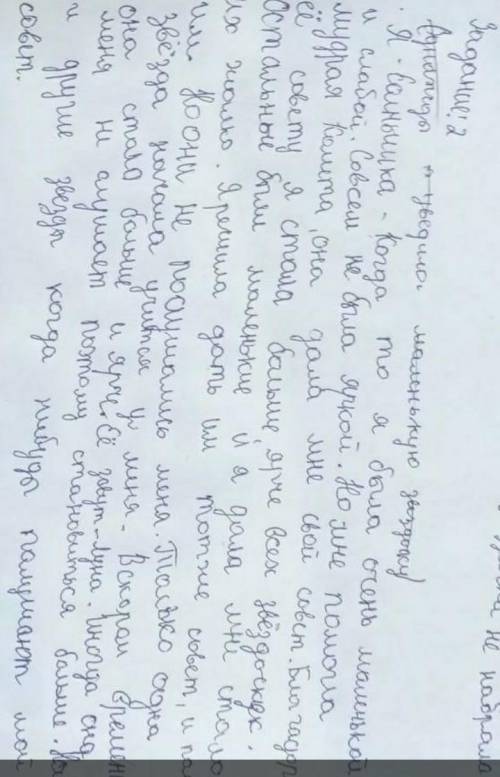 не набрала
Задание: 2
увидила маленькую звездочку
Я - Солнышка - когда то я была очень маленькой
и слабой. Совсем не была яркой. Но мне помогла
мудрая Комета, она дала мне свой совет. Благадор
её совету я стала больше, ярче всех звёздочек.
Остальные были маленькие и я дала мне стало
их жалко. Я решила дать им тотже совет, и
им. Но они не послушались меня. Только одна
звёзда начала учится у меня. Вскорам времен
она стала больше и ярче. Её звут - Луна. Иногда она
меня не слушает поэтому становиться больше.
и другие звезды когда нибудь палушают мой
совет.